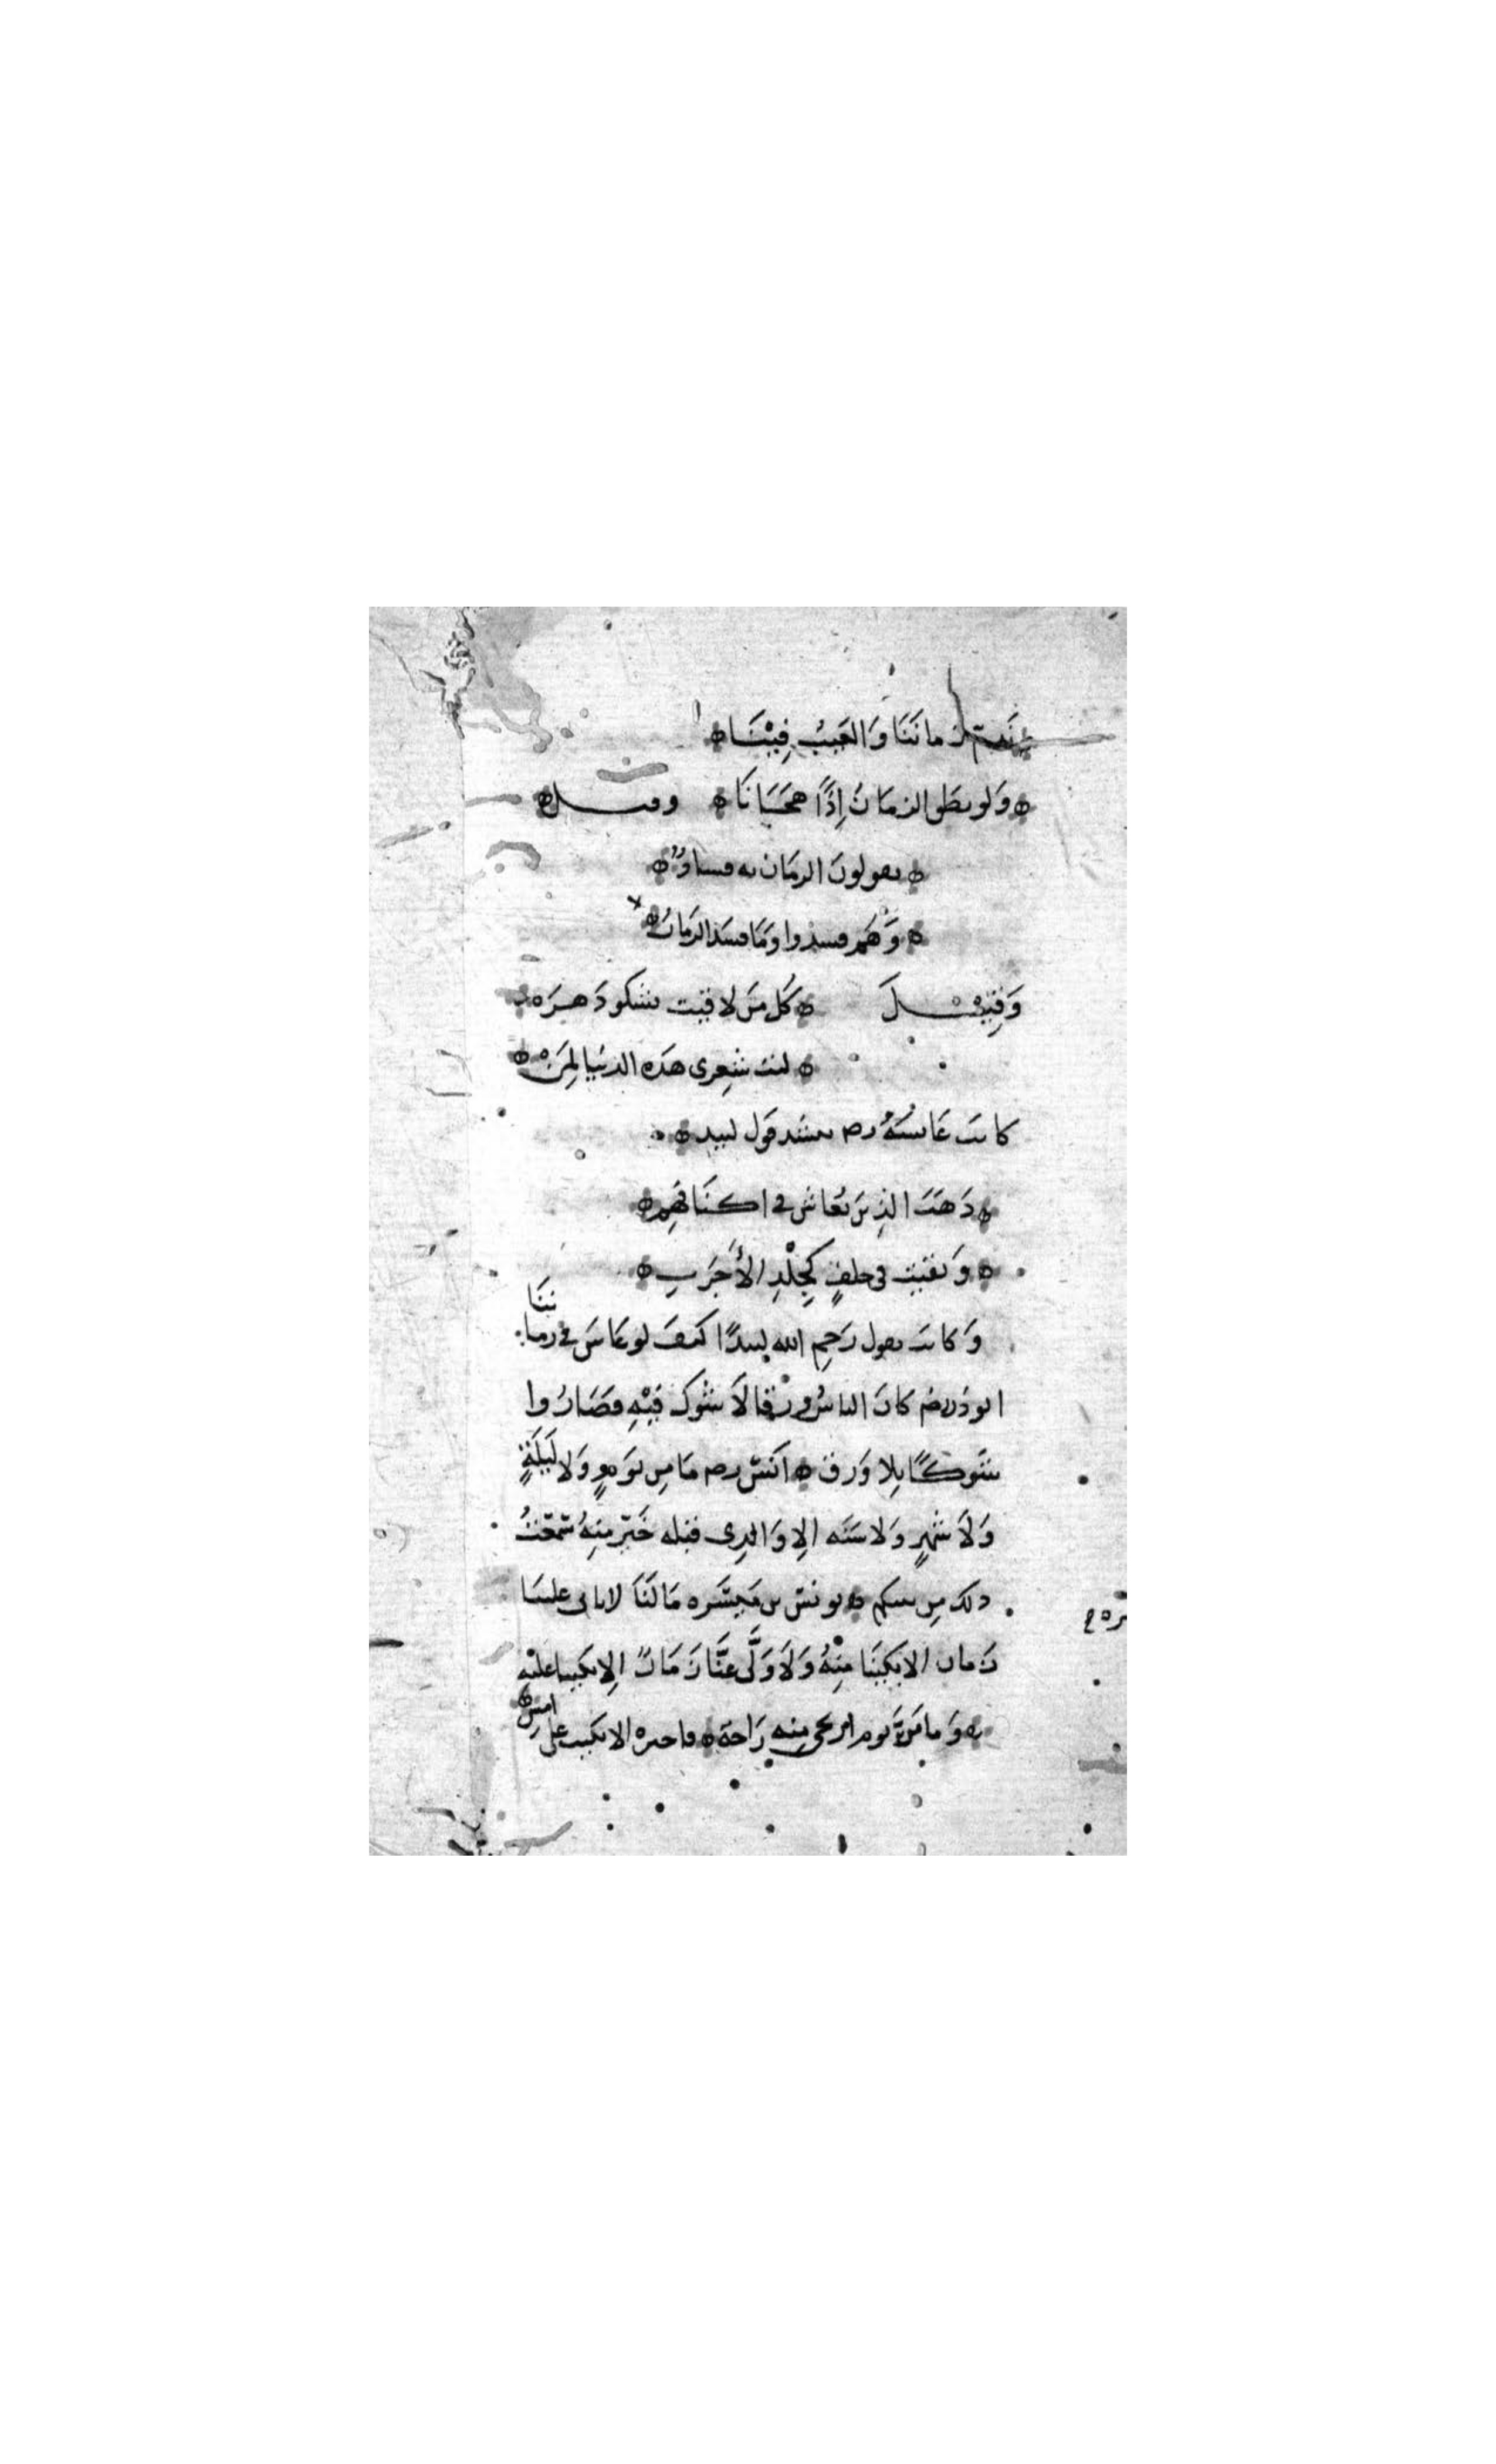 نَذُمّ زماننَا وَالعَيبُ فِيْنَا
وَلو نطَق الزمَانُ إِذًا هَجَانَا وقيل
يقولون الزمَان به فساد
وَهُم فسدوا وَمَا فسَد الزمَانُ
وَقِيْلَ كُل مَن لاقيت يشكو دَهرَه
ليت شعرى هذه الدنيا لِمَنْ
كانت عَائشةُ رضه تنشد قول لبيد
ذَهَبَ الذِينَ يُعَاش فى اكنَافهِم
وَبقيت فى خلفٍ كجِلْدِ الأَجرَبِ
وَكانت تقول رَحِم الله لبيدًا كيفَ لو عَاشَ فى زماننَا
ابو ذر رضه كانَ الناسُ ورقا لاَ شوك فيْهِ فصَارُوا
شَوكًا بِلا وَرق اَنس رضه مَا مِن يَومٍ وَلا لَيلَةٍ
وَلاَ شهرٍ وَلا سَنَه إلا وَالذِى قبله خَير مِنهُ سَمعتُ
ذلك مِن نبيكم يونس بن مَيسَره مَا لَنَا لا ياتى علينَا
زمان الا بَكينَا مِنْهُ وَلاَ وَلَّى عَنَّا زَمَانٌ إِلا بكينا عليْهِ
وَما مَرَّ يَوم ارتجى مِنه رَاحَة فاخبره الا بكيت على امسِ